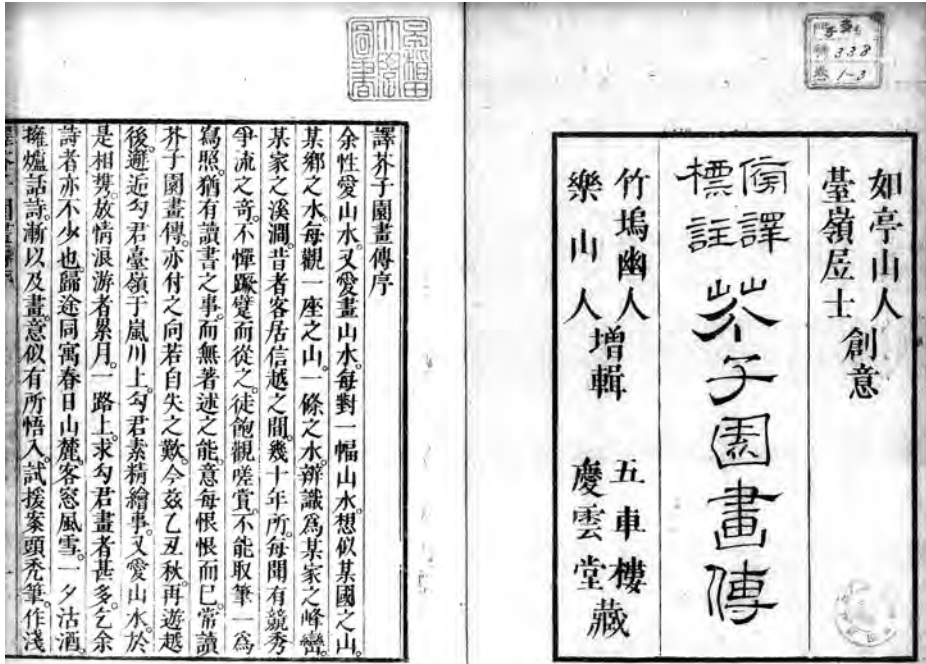 如亭山人
臺嶺居士
創意
傍譯
標註
芥子園畫傳
竹塢幽人
樂山人
增輯
五車樓
慶雲堂
藏
338
1-3
譯芥子園畫傳序
余性愛山水。又愛畫山水。每對一幅山水。想似某國之山。
某鄉之水。每觀一座之山。一條之水。辨識爲某家之峰巒。
某家之溪澗。昔者客居信越之間。幾十年所。每聞有競秀
爭流之奇。不憚蹶躄而從之。徒飽觀嗟賞。不能取筆一爲
寫照。猶有讀書之事。而無著述之能。意每恨恨而已。常讀
芥子園畫傳。亦付之向若自失之歎。今茲乙丑秋。再遊越
後。邂逅勾君臺嶺于嵐川上。勾君素精繪事。又愛山水。於
是相携。放情浪游者累月。一路上。求勾君畫者甚多。乞余
詩者亦不少也。歸途同寓春日山麓。客窓風雪。一夕沽酒。
擁爐話詩。漸以及畫。意似有所悟入。試援案頭禿筆。作淺